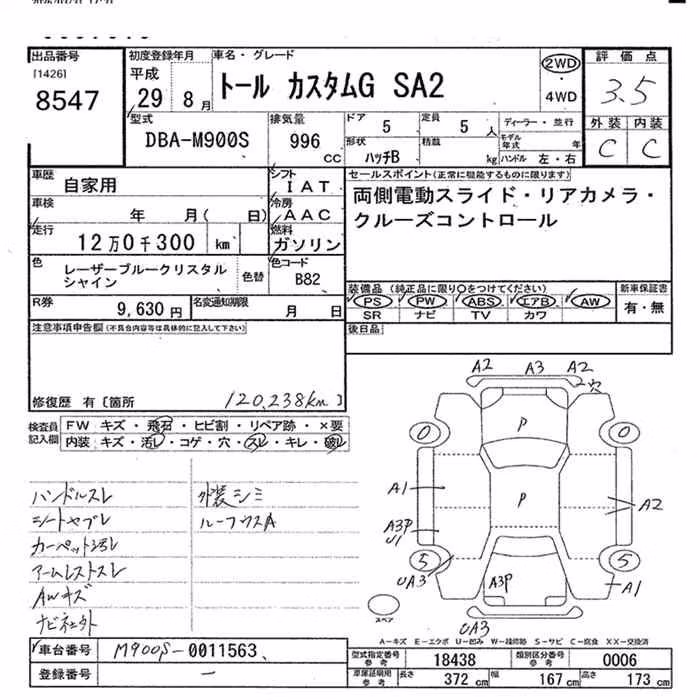 出品番号
[1426]
8547
初度登録年月
平成
29 8 月
車名・グレード
トール カスタムG SA2
2WD
・
4WD
評価点
3.5
外装 内装
C C
型式
DBA-M900S
排気量
996
CC
ドア 5
定員 5 人
ディーラー・並行
形状
ハッチB
積載
kg
モデル年式 年
ハンドル 左・右
車歴
自家用
シフト
IAT
車検 年 月( 日)
冷房
AAC
走行
12万0千300 km
燃料
ガソリン
色
レーザーブルークリスタル
シャイン
色替
色コード
B82
R券
9,630 円
名変通知期限
月 日
セールスポイント(正常に機能するものに限ります)
両側電動スライド・リアカメラ・
クルーズコントロール
装備品 (純正品に限り○をつけてください)
PS PW ABS エアB AW
SR ナビ TV カワ
新車保証書
有・無
後日品
注意事項申告欄(不具合内容等は具体的に記入して下さい)
修復歴 有〔箇所 120,238km〕
検査員
記入欄
FW キズ・飛石・ヒビ割・リペア跡・×要
内装 キズ・汚レ・コゲ・穴・スレ・キレ・破レ
ハンドルスレ
シートヤブレ
カーペット汚レ
アームレストスレ
AWキズ
外装シミ
A2 A3 A2
P
0 0
A1
P
A2
A3P
U1
5 5
UA3
A3P
A1
UA3
スペア
A-キズ E-エクボ U-凹み W-補修跡 S-サビ C-腐食 XX-交換済
車台番号
M900S-0011563
登録番号
—
型式指定番号
参考
18438
類別区分番号
参考
0006
車庫証明用
参考
長さ 372 cm 幅 167 cm 高さ 173 cm